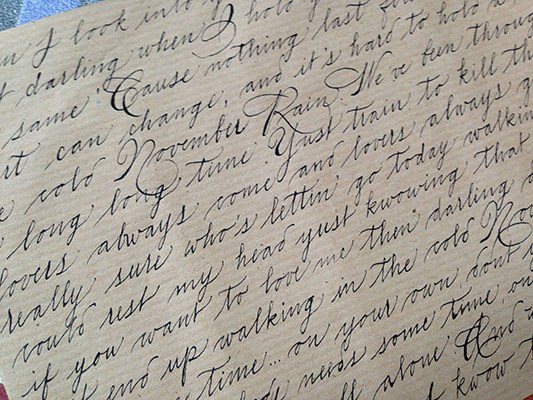 I look into
darling when I hold
same 'Cause nothing last
can change, and it's hard to hold a
cold November Rain. We've been through
long long time Yust train to kill the
lovers always come and lovers always
really sure who's lettin' go today walkin
could rest my head yust kwowing that
if you want to love me then darling
end up walking in the cold
time... on your own dont
needs some time, on
alone. And
kwow